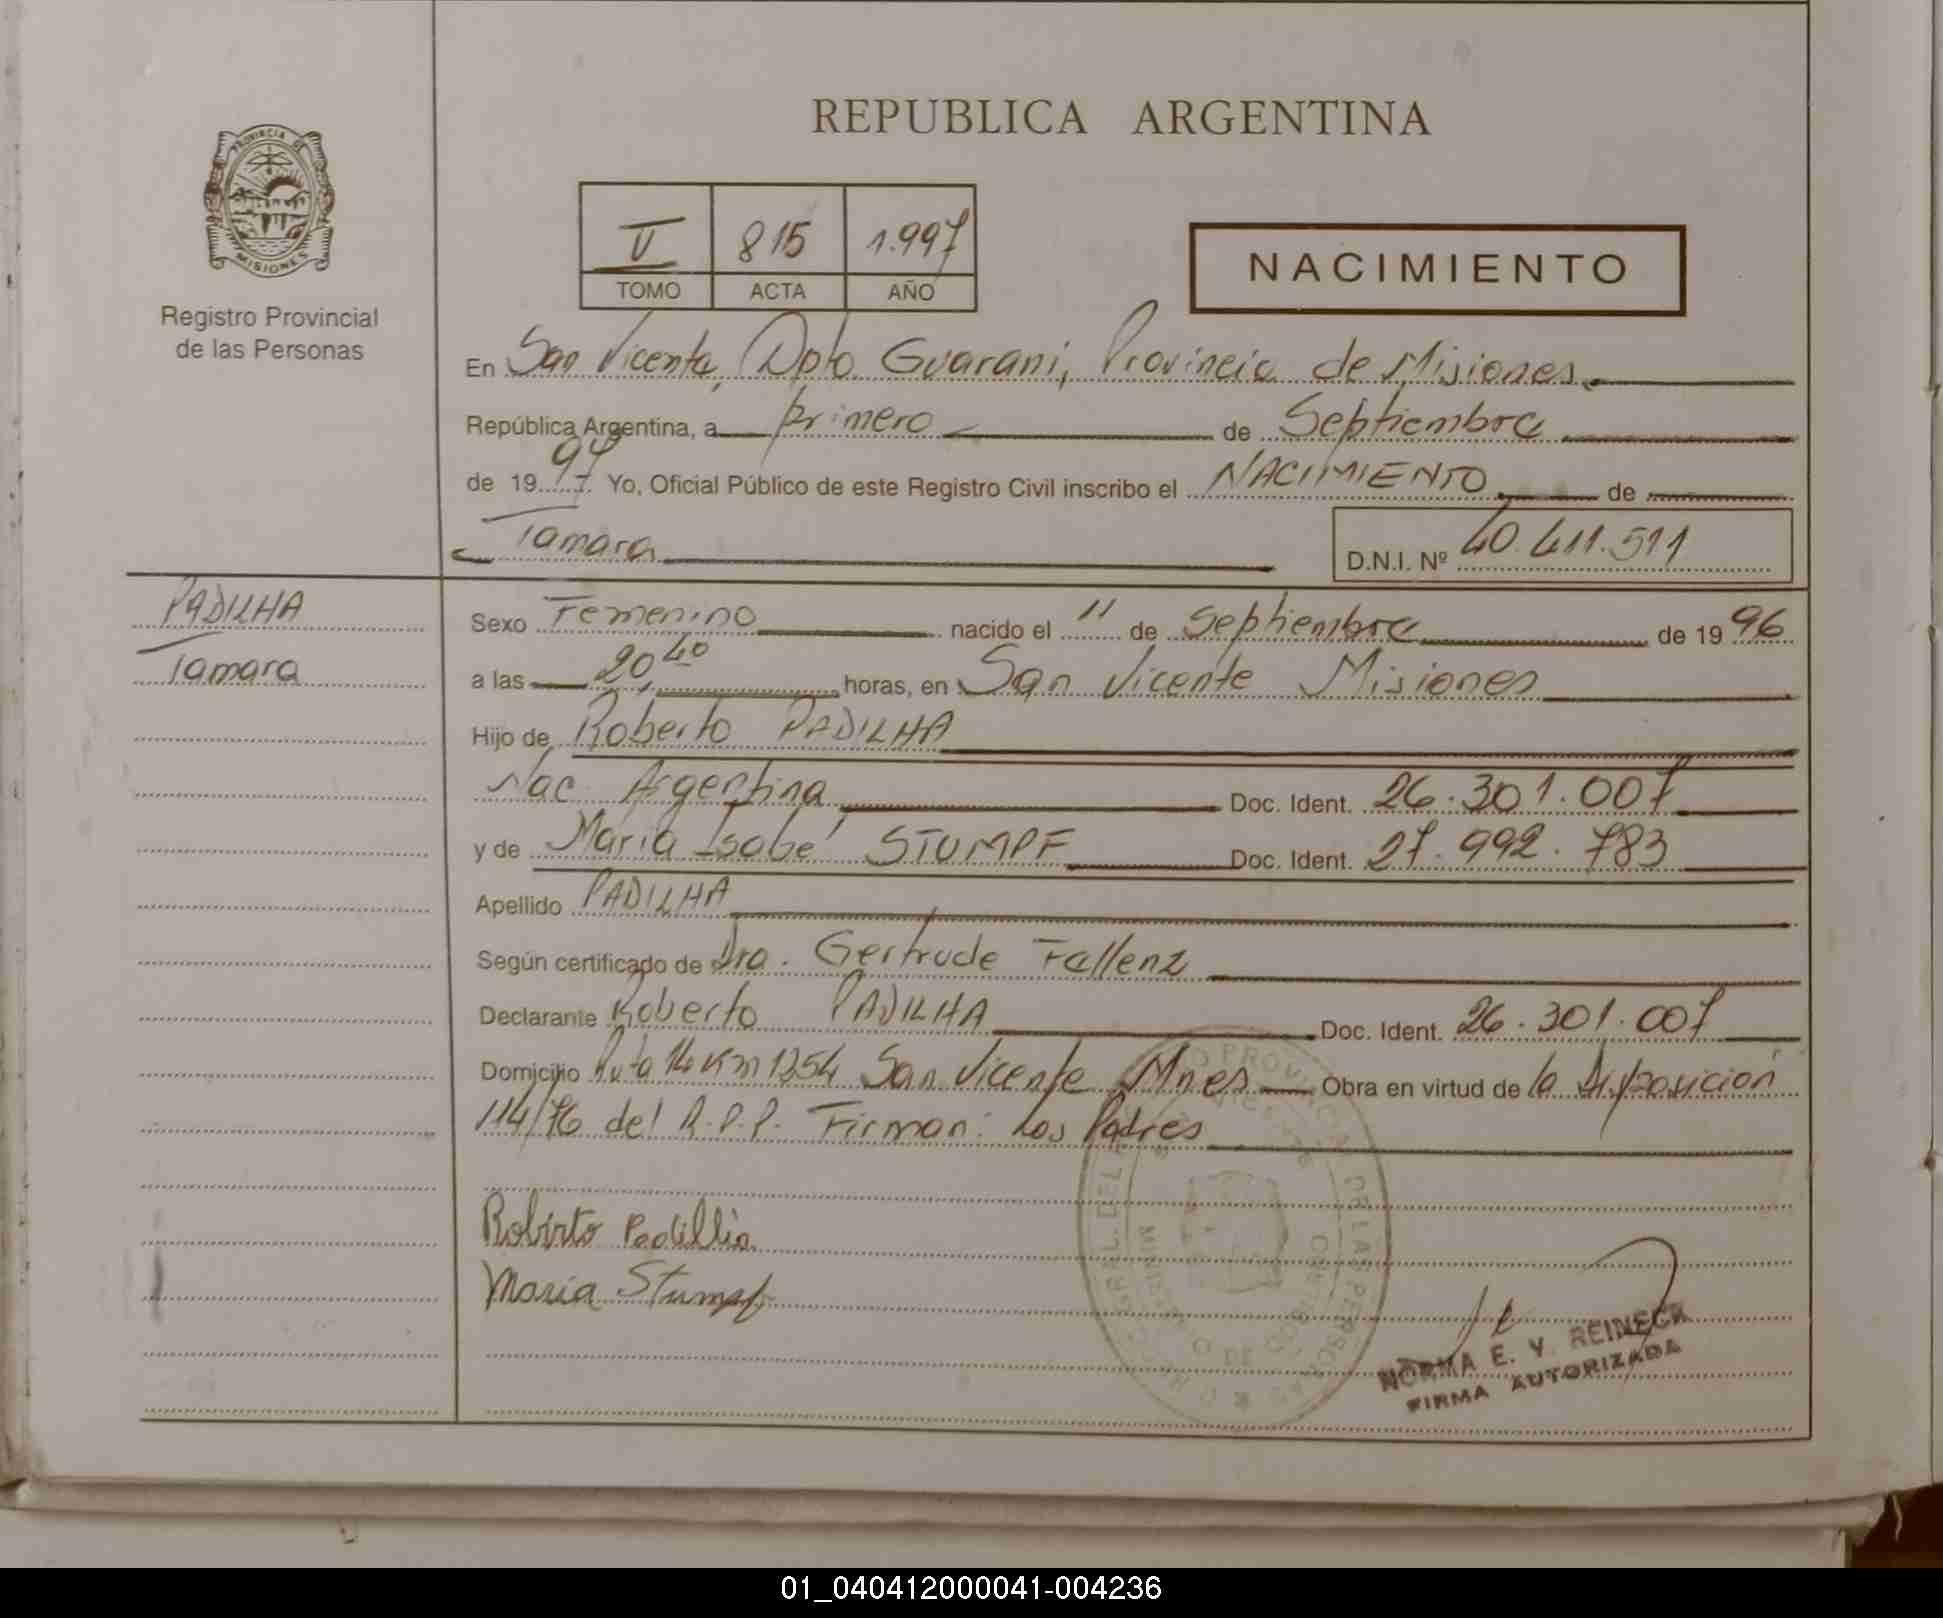 REPUBLICA ARGENTINA
PROVINCIA DE
MISIONES
Registro Provincial
de las Personas
V 815 1.997
TOMO ACTA AÑO
NACIMIENTO
En San Vicente, Dpto. Guarani, Provincia de Misiones.
República Argentina, a primero de Septiembre
de 1997 Yo, Oficial Público de este Registro Civil inscribo el NACIMIENTO de
Tamara
D.N.I. Nº 40.411.511
PADILHA
Tamara
Sexo Femenino nacido el 11 de Septiembre de 1996
a las 20,40 horas, en San Vicente Misiones
Hijo de Roberto PADILHA
Nac. Argentina Doc. Ident. 26.301.007
y de Maria Isabel STUMPF Doc. Ident. 27.992.783
Apellido PADILHA
Según certificado de Dra. Gertrude Fallenz
Declarante Roberto PADILHA Doc. Ident. 26.301.007
Domicilio Ruta 14 Km 1254 San Vicente Mnes Obra en virtud de la Disposición
114/76 del R.P.P. Firman: Los Padres
Roberto
Maria Stumpf
NORMA E. Y. REINECK
FIRMA AUTORIZADA
01_040412000041-004236